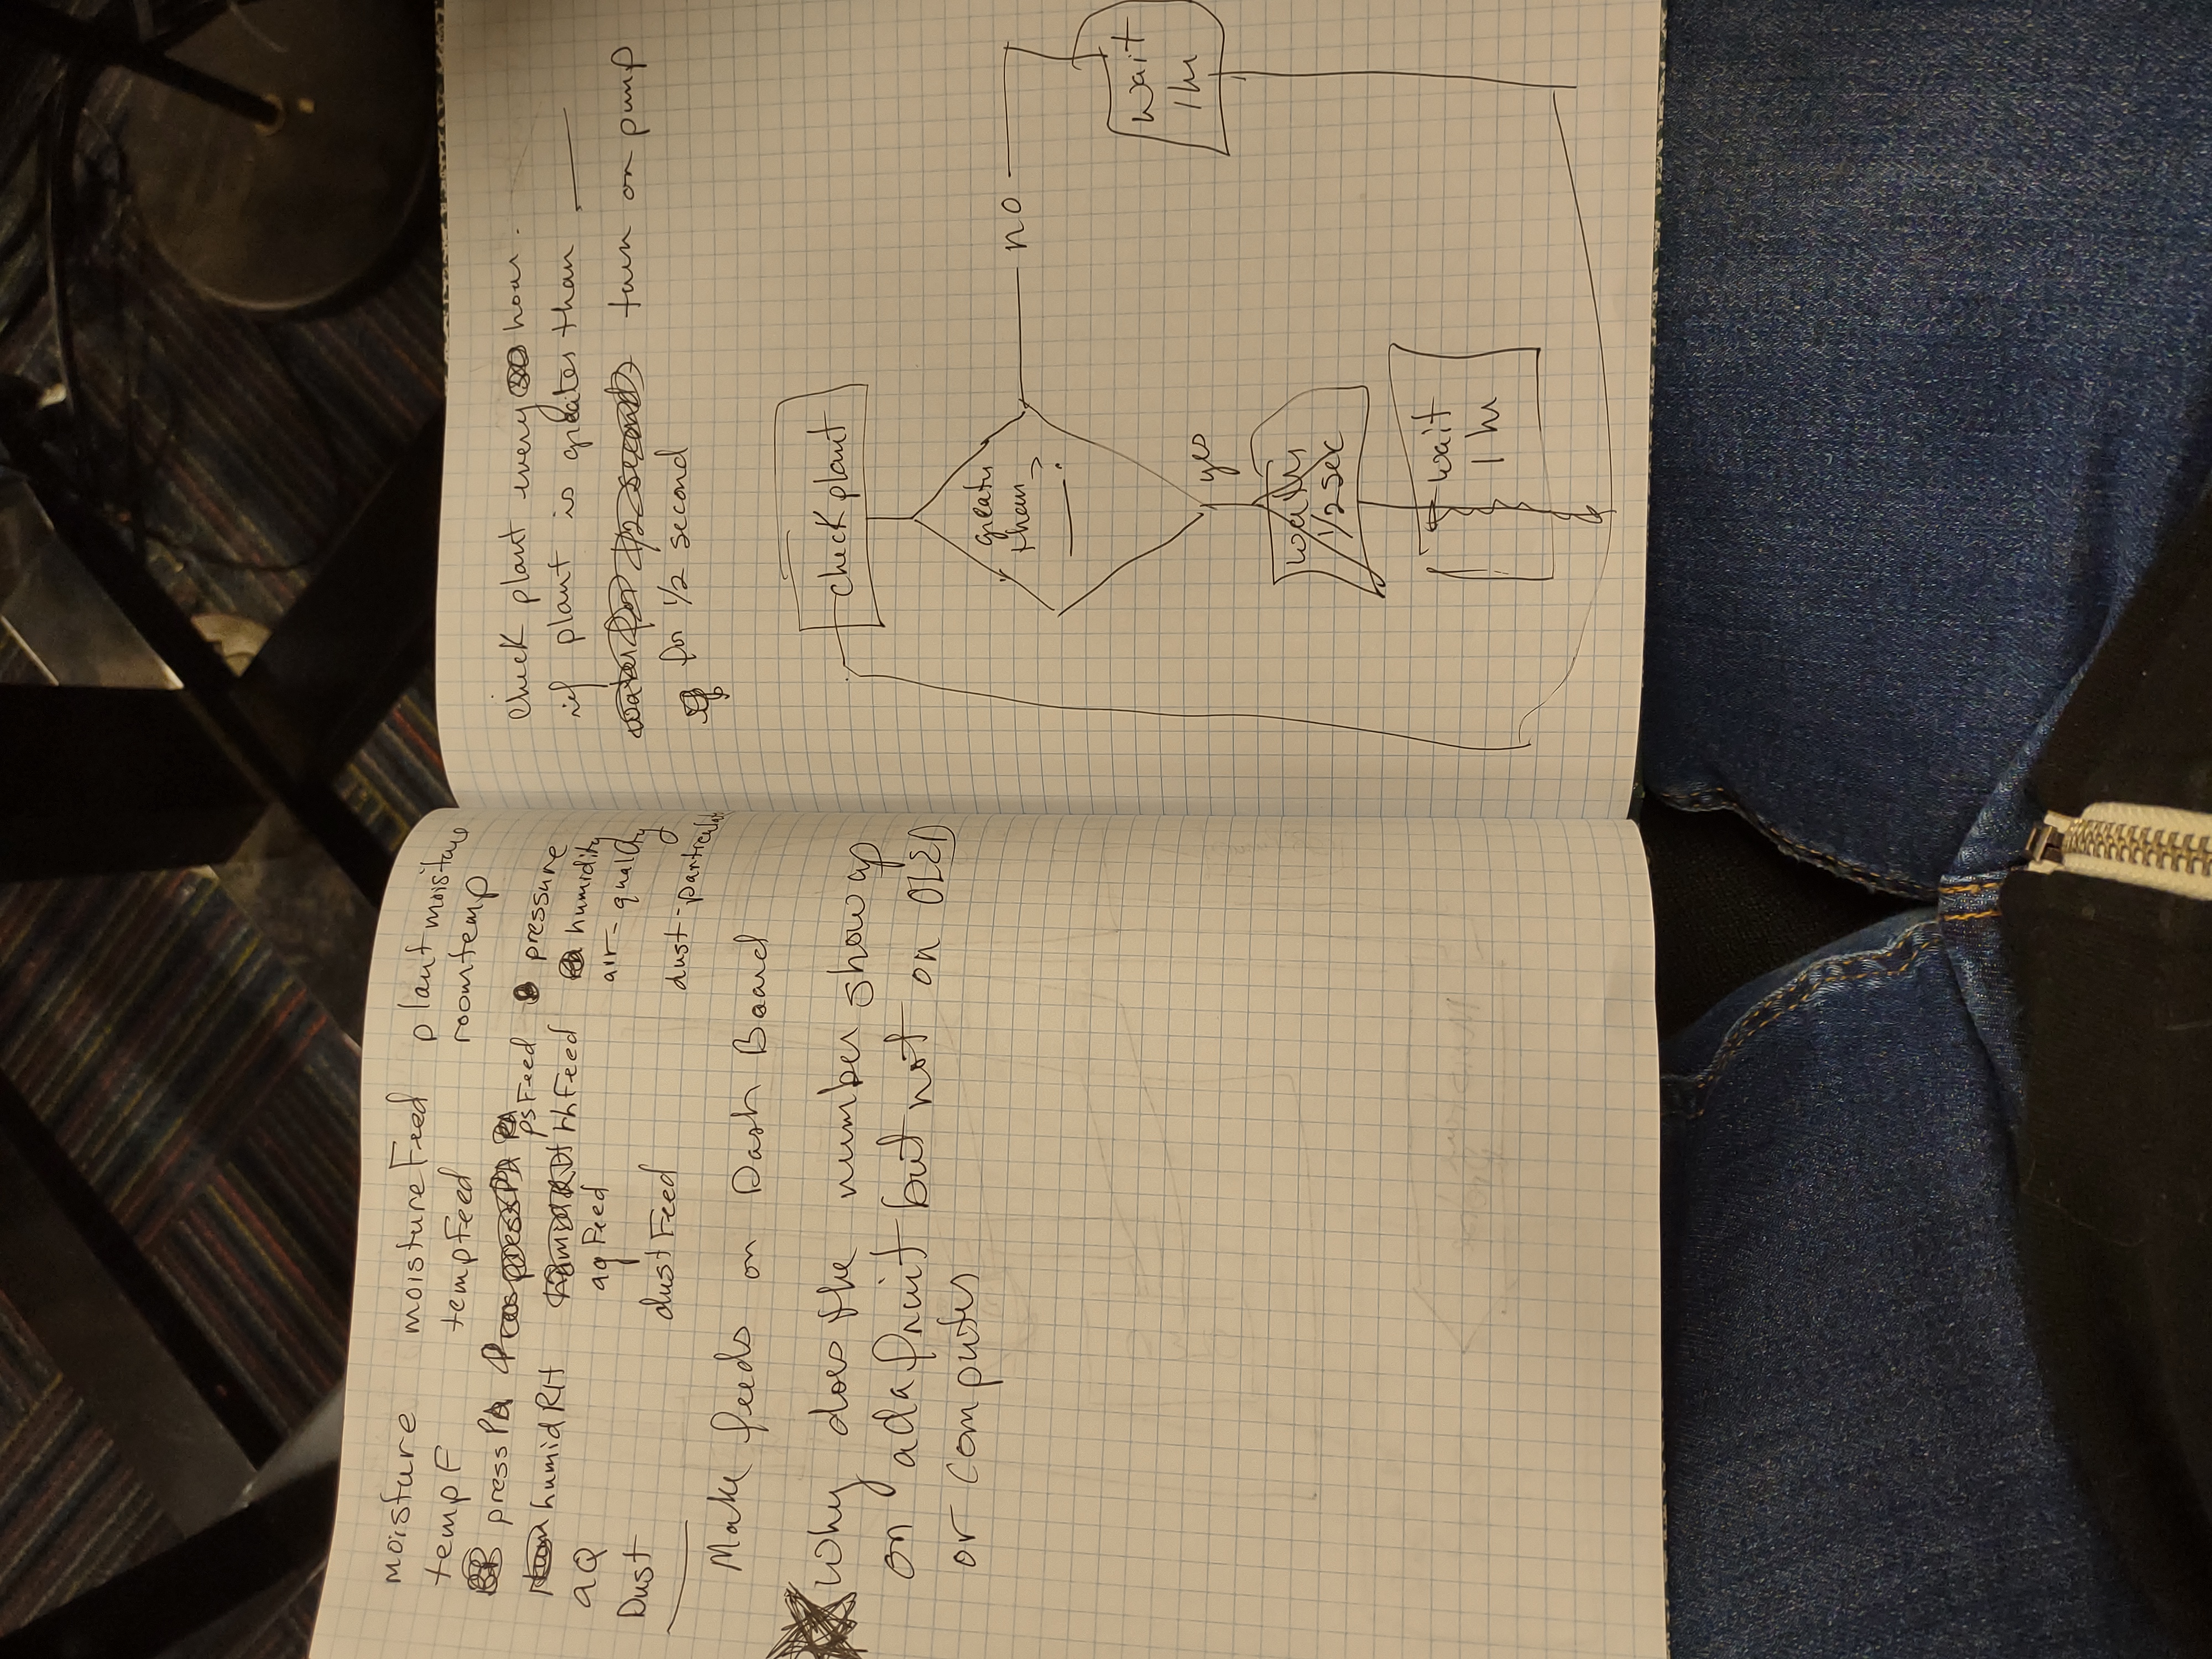 moisture moistureFeed plantmoisture
tempF tempFeed roomtemp
pressPA psFeed pressure
humidRH rhFeed humidity
aQ aqFeed air-quality
Dust dustFeed dust-particulat
Make feeds on Dash Board
Why does the number show up
on adafruit but not on OLED
or computer
check plant every hour.
if plant is greater than ___
water for 1/2 seconds turn on pump
for 1/2 second
check plant
greater
than
___?
no
wait
1 hr
yes
water
1/2 sec
wait
1 hr